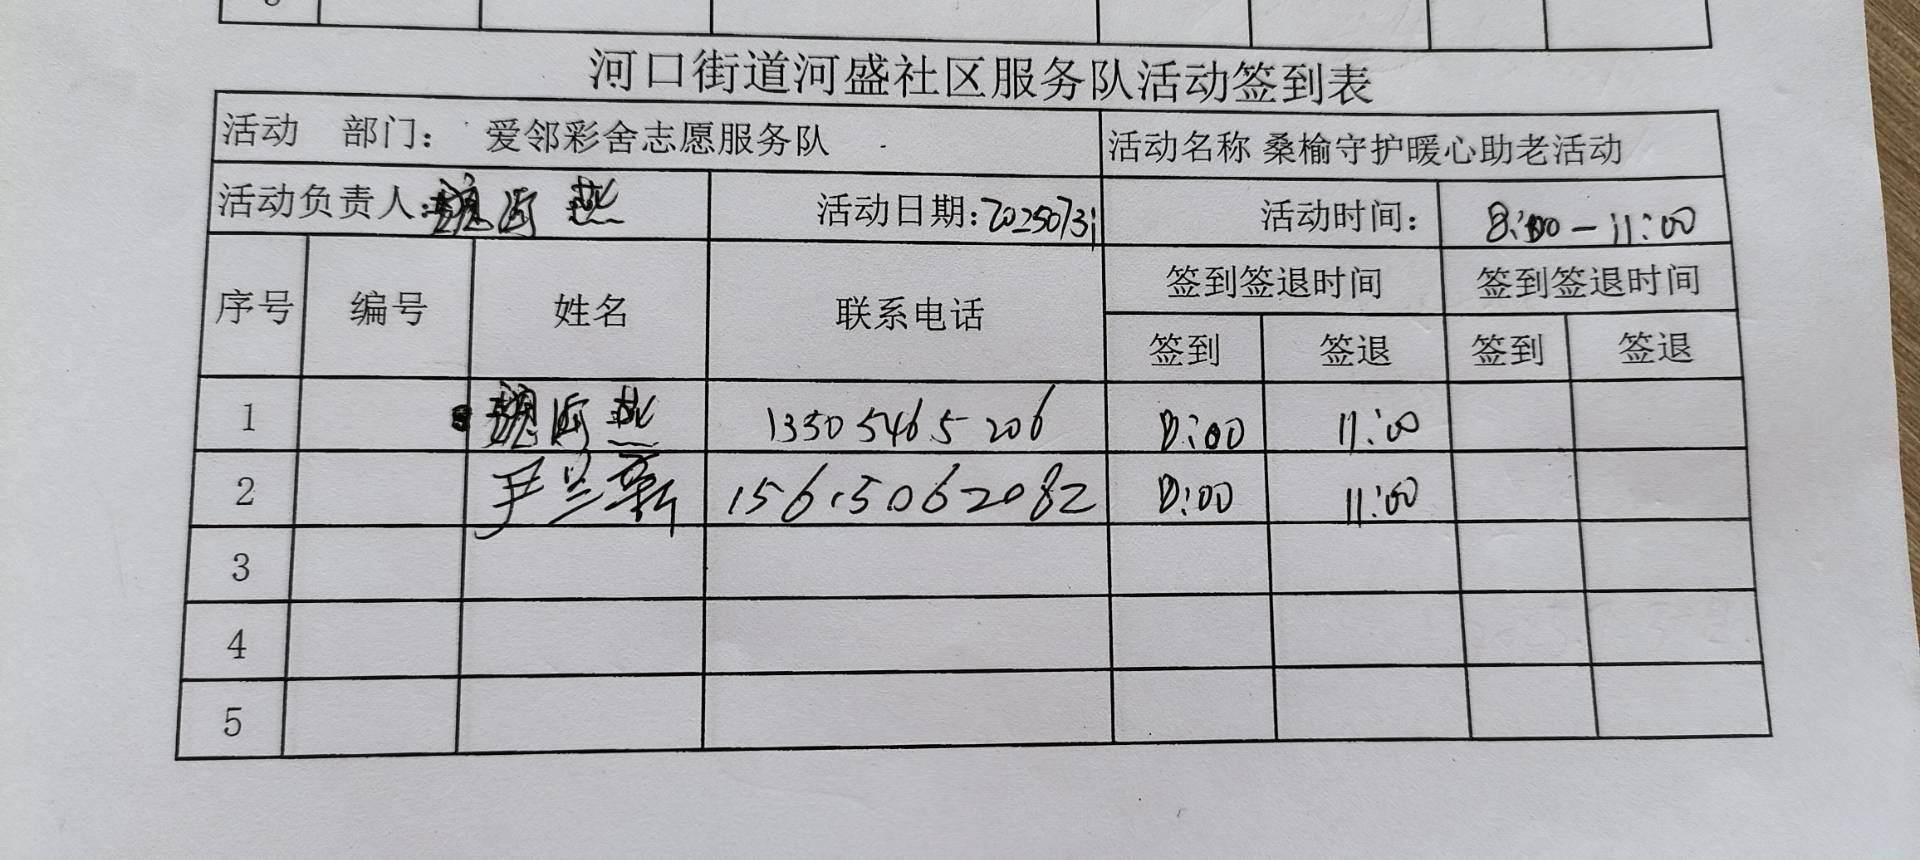 河口街道河盛社区服务队活动签到表
活动 部门： 爱邻彩舍志愿服务队 活动名称 桑榆守护暖心助老活动
活动负责人： 魏河燕 活动日期：20250731 活动时间： 8:00-11:00
序号 编号 姓名 联系电话 签到签退时间 签到签退时间
签到 签退 签到 签退
1 魏河燕 13505465206 8:00 11:00
2 尹兰新 15615062082 8:00 11:00
3
4
5